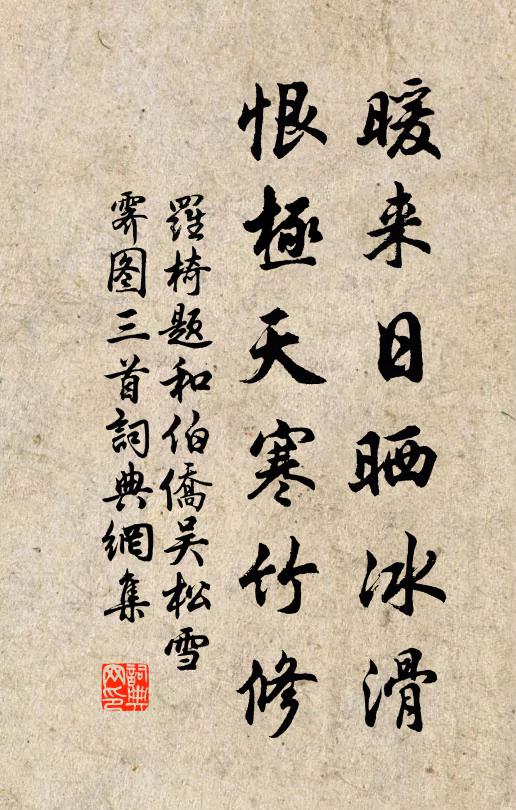 暖来日晒冰滑
恨極天寒竹修
羅椅题和伯僑吴松雪
霁图三首詞典網集
詞典网印